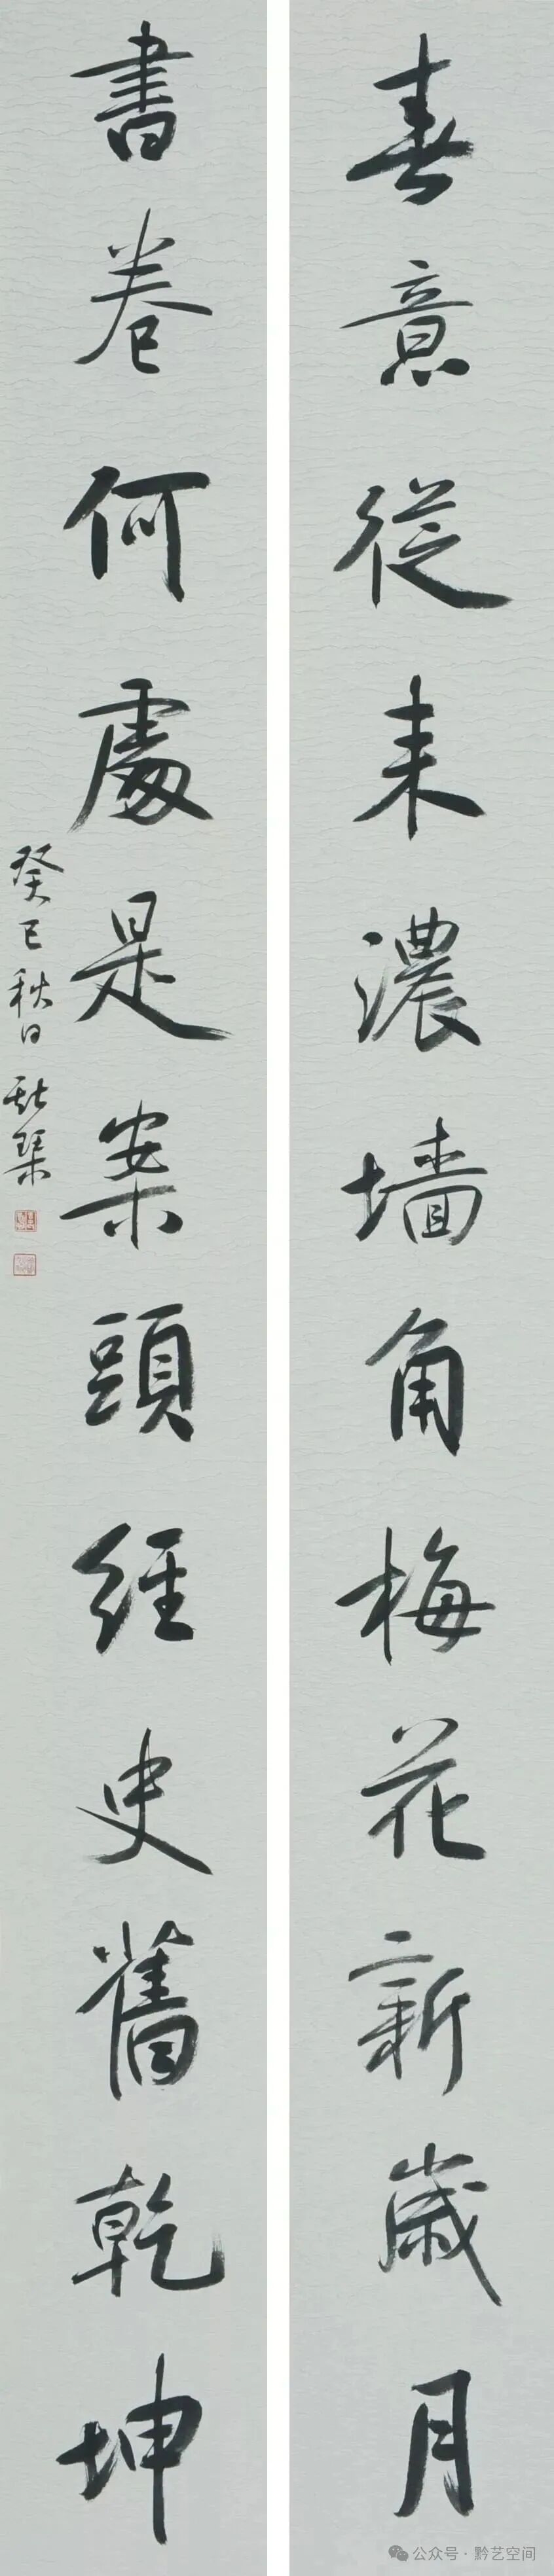 春意従来濃墙角梅花新歳月
書卷何處是案頭經史舊乾坤
癸巳秋日
公众号·黔艺空间